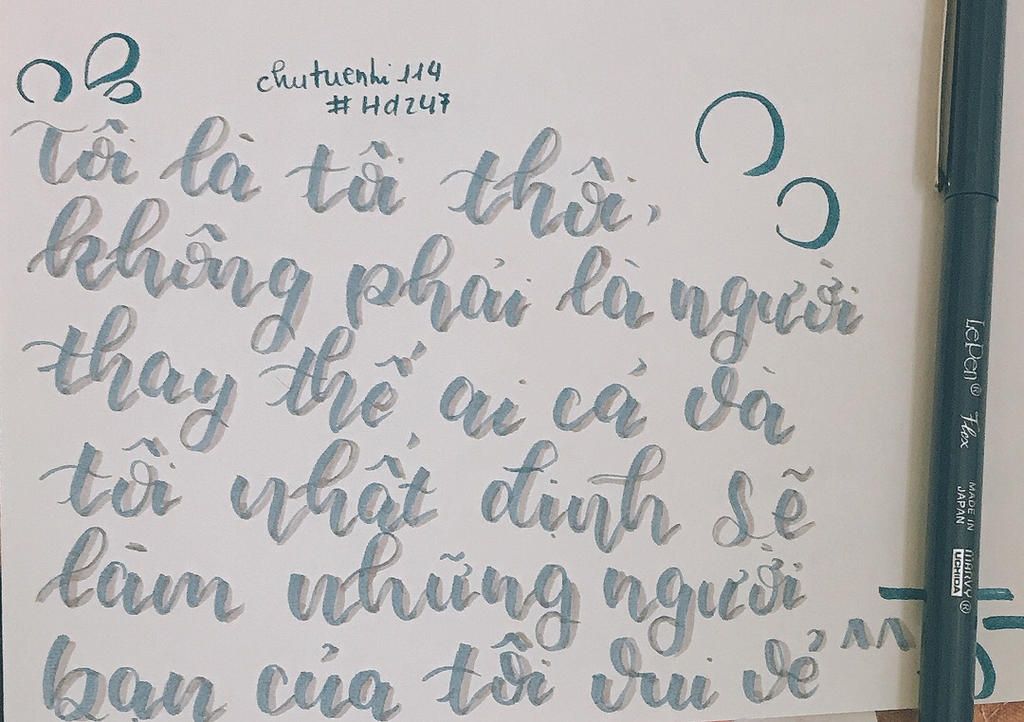 chutuenhi114
#Hd247
Tôi là tôi thôi,
không phải là người
thay thế ai cả và
tôi nhất định sẽ
làm những người
bạn của tôi vui vẻ ^^
LePen® Flex
MADE IN
JAPAN
MARVY®
UCHIDA